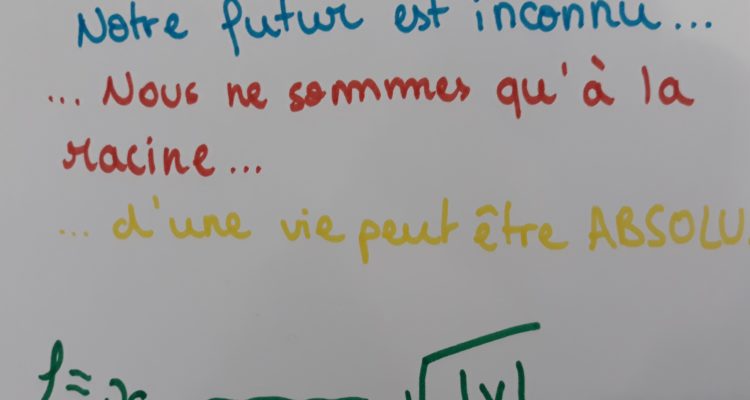 Notre futur est inconnu...
... Nous ne sommes qu'à la
racine...
... d'une vie peut être ABSOLU